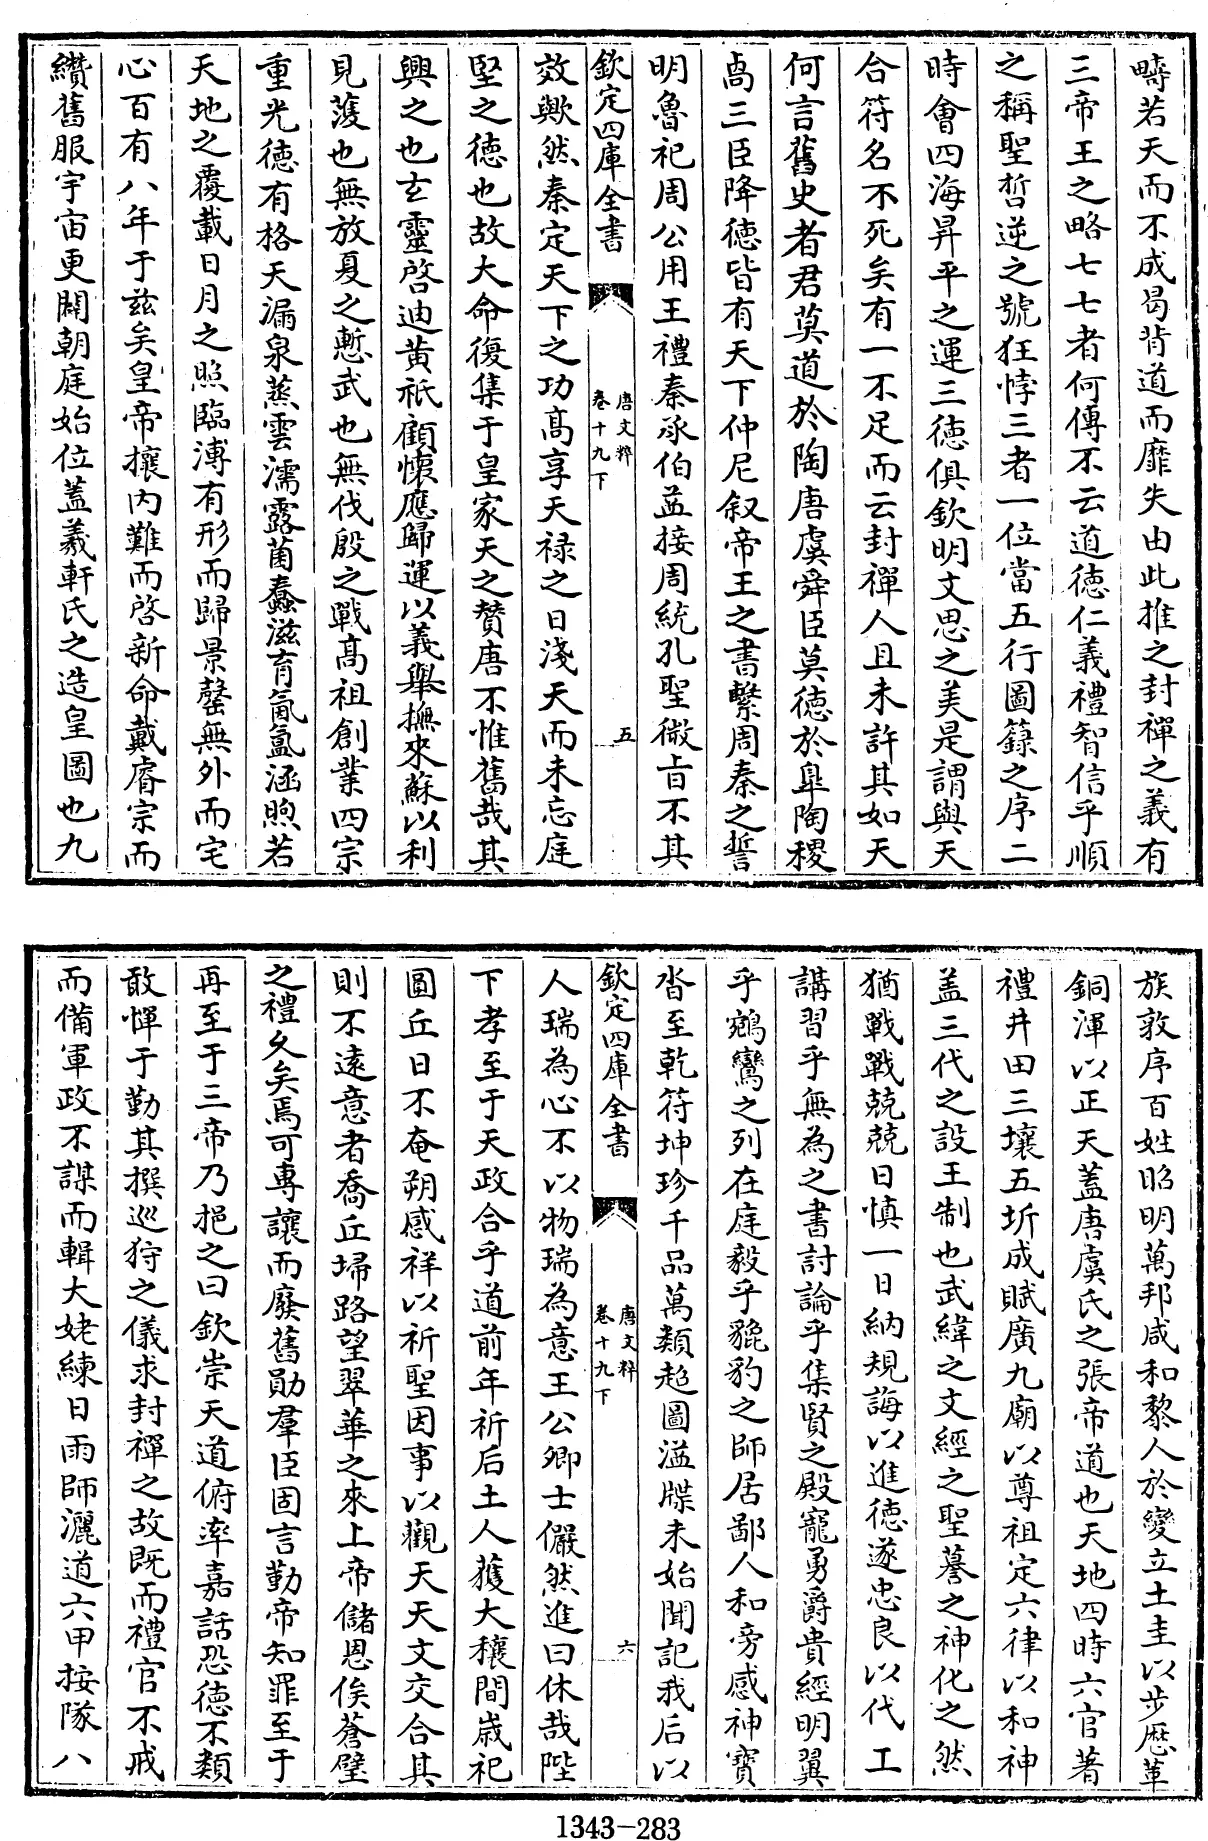 疇若天而不成曷背道而靡失由此推之封禪之義有
三帝王之略七七者何傳不云道德仁義禮智信乎順
之稱聖哲逆之號狂悖三者一位當五行圖籙之序二
時會四海昇平之運三德俱欽明文思之美是謂與天
合符名不死矣有一不足而云封禪人且未許其如天
何言舊史者君莫道於陶唐虞舜臣莫德於臯陶稷
卨三臣降德皆有天下仲尼叙帝王之書繫周秦之誓
明魯祀周公用王禮秦承伯益接周統孔聖微旨不其
欽定四庫全書
唐文粹
卷十九下
五
效歟然秦定天下之功高享天禄之日淺天而未忘庭
堅之德也故大命復集于皇家天之贊唐不惟舊哉其
興之也玄靈啓迪黄祇顧懷應歸運以義舉撫來蘇以利
見蒦也無放夏之慙武也無伐殷之戰高祖創業四宗
重光德有格天漏泉蒸雲濡露菌蠢滋育氤氲涵煦若
天地之覆載日月之照臨溥有形而歸景罄無外而宅
心百有八年于兹矣皇帝攘内難而啓新命戴睿宗而
纘舊服宇宙更闢朝庭始位蓋羲軒氏之造皇圖也九
族敦序百姓昭明萬邦咸和黎人於變立土圭以步歷革
銅渾以正天蓋唐虞氏之張帝道也天地四時六官著
禮井田三壤五圻成賦廣九廟以尊祖定六律以和神
盖三代之設王制也武緯之文經之聖謩之神化之然
猶戰戰兢兢日慎一日納規誨以進德遂忠良以代工
講習乎無為之書討論乎集賢之殿寵勇爵貴經明翼
乎鵷鸞之列在庭毅乎貔豹之師居鄙人和旁感神寳
沓至乾符坤珍千品萬類超圖溢牒未始聞記我后以
欽定四庫全書
唐文粹
卷十九下
六
人瑞為心不以物瑞為意王公卿士儼然進曰休哉陛
下孝至于天政合乎道前年祈后土人獲大穰間歲祀
圜丘日不奄朔感祥以祈聖因事以觀天天文交合其
則不遠意者喬丘埽路望翠華之來上帝儲恩俟蒼璧
之禮久矣焉可專讓而廢舊勛羣臣固言勤帝知罪至于
再至于三帝乃挹之曰欽崇天道俯率嘉話恐德不類
敢憚于勤其撰巡狩之儀求封禪之故既而禮官不戒
而備軍政不謀而輯大姥練日雨師灑道六甲按隊八
1343-283